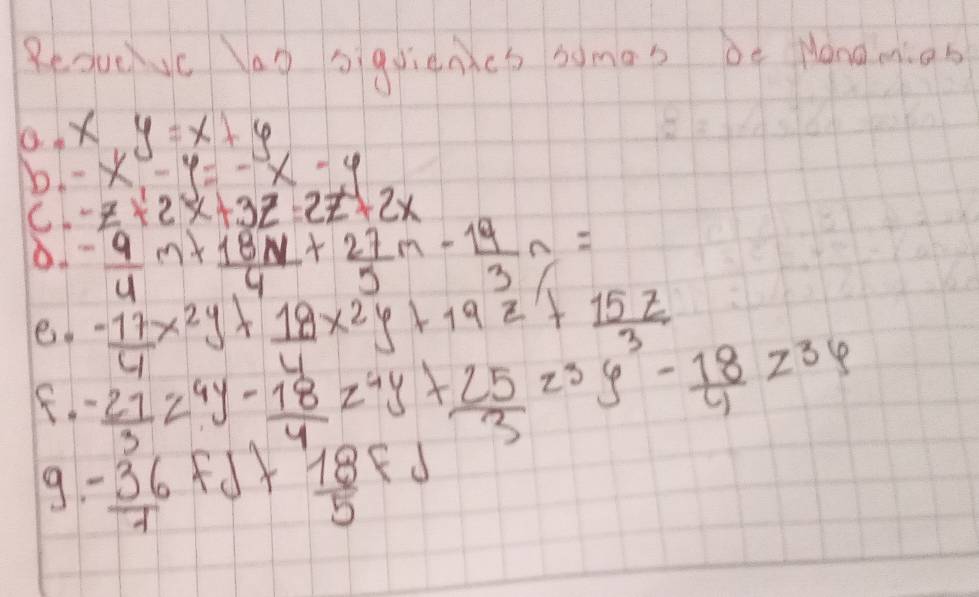 Resuelve las siguientes sumas de Monomios
a. x y = x + y
b. - x, - y = - x - y
c. - z + 2x + 3z = 2z + 2x
d. - 9/4 m + 18N/4 + 27/5 m - 19/3 n =
e. - 17/4 x²y + 18/4 x²y + 19z + 15z/3
f. - 21/3 z⁴y - 18/4 z⁴y + 25/3 z³y³ - 18/4 z³y
g. - 36/7 fJ + 18/5 fJ